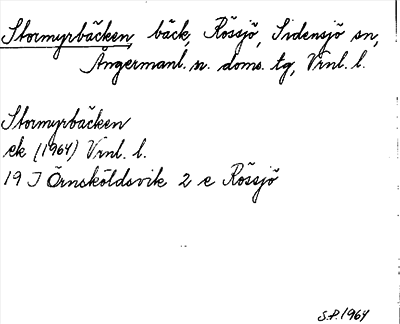 Stormyrbäcken, bäck, Rössjö, Sidensjö sn,
Ångermanl. n. doms. tg, Vrnl. l.
Stormyrbäcken
ek (1964) Vrnl. l.
19 J Örnsköldsvik 2 e Rössjö
S.P. 1964